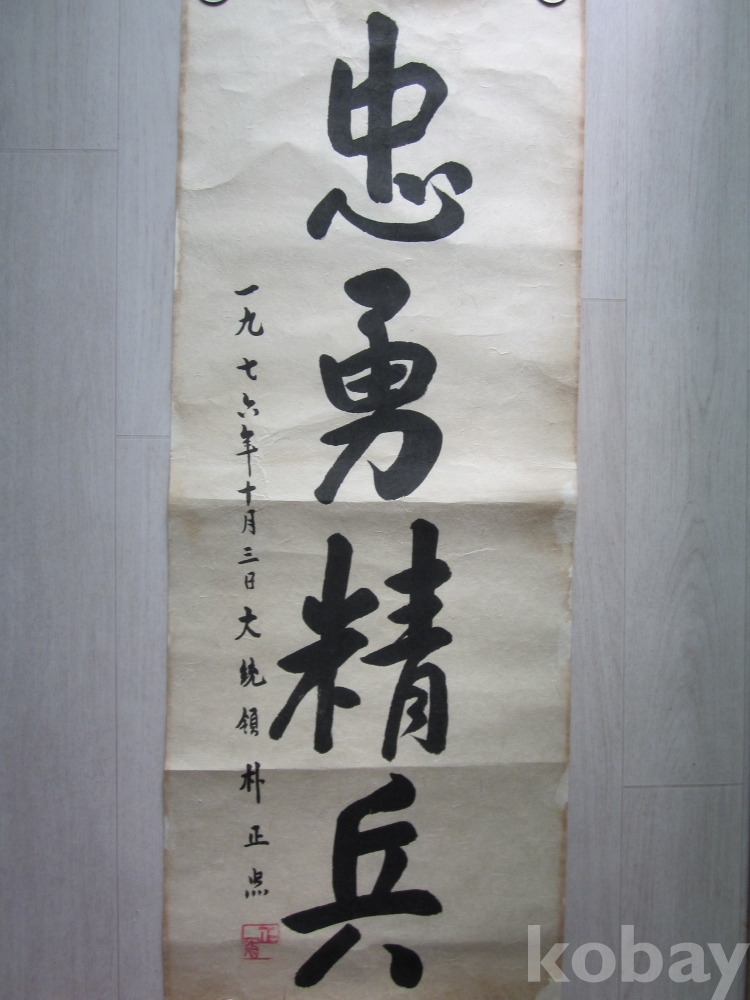 忠勇精兵
一九七六年十月三日大統領朴正熙
kobay